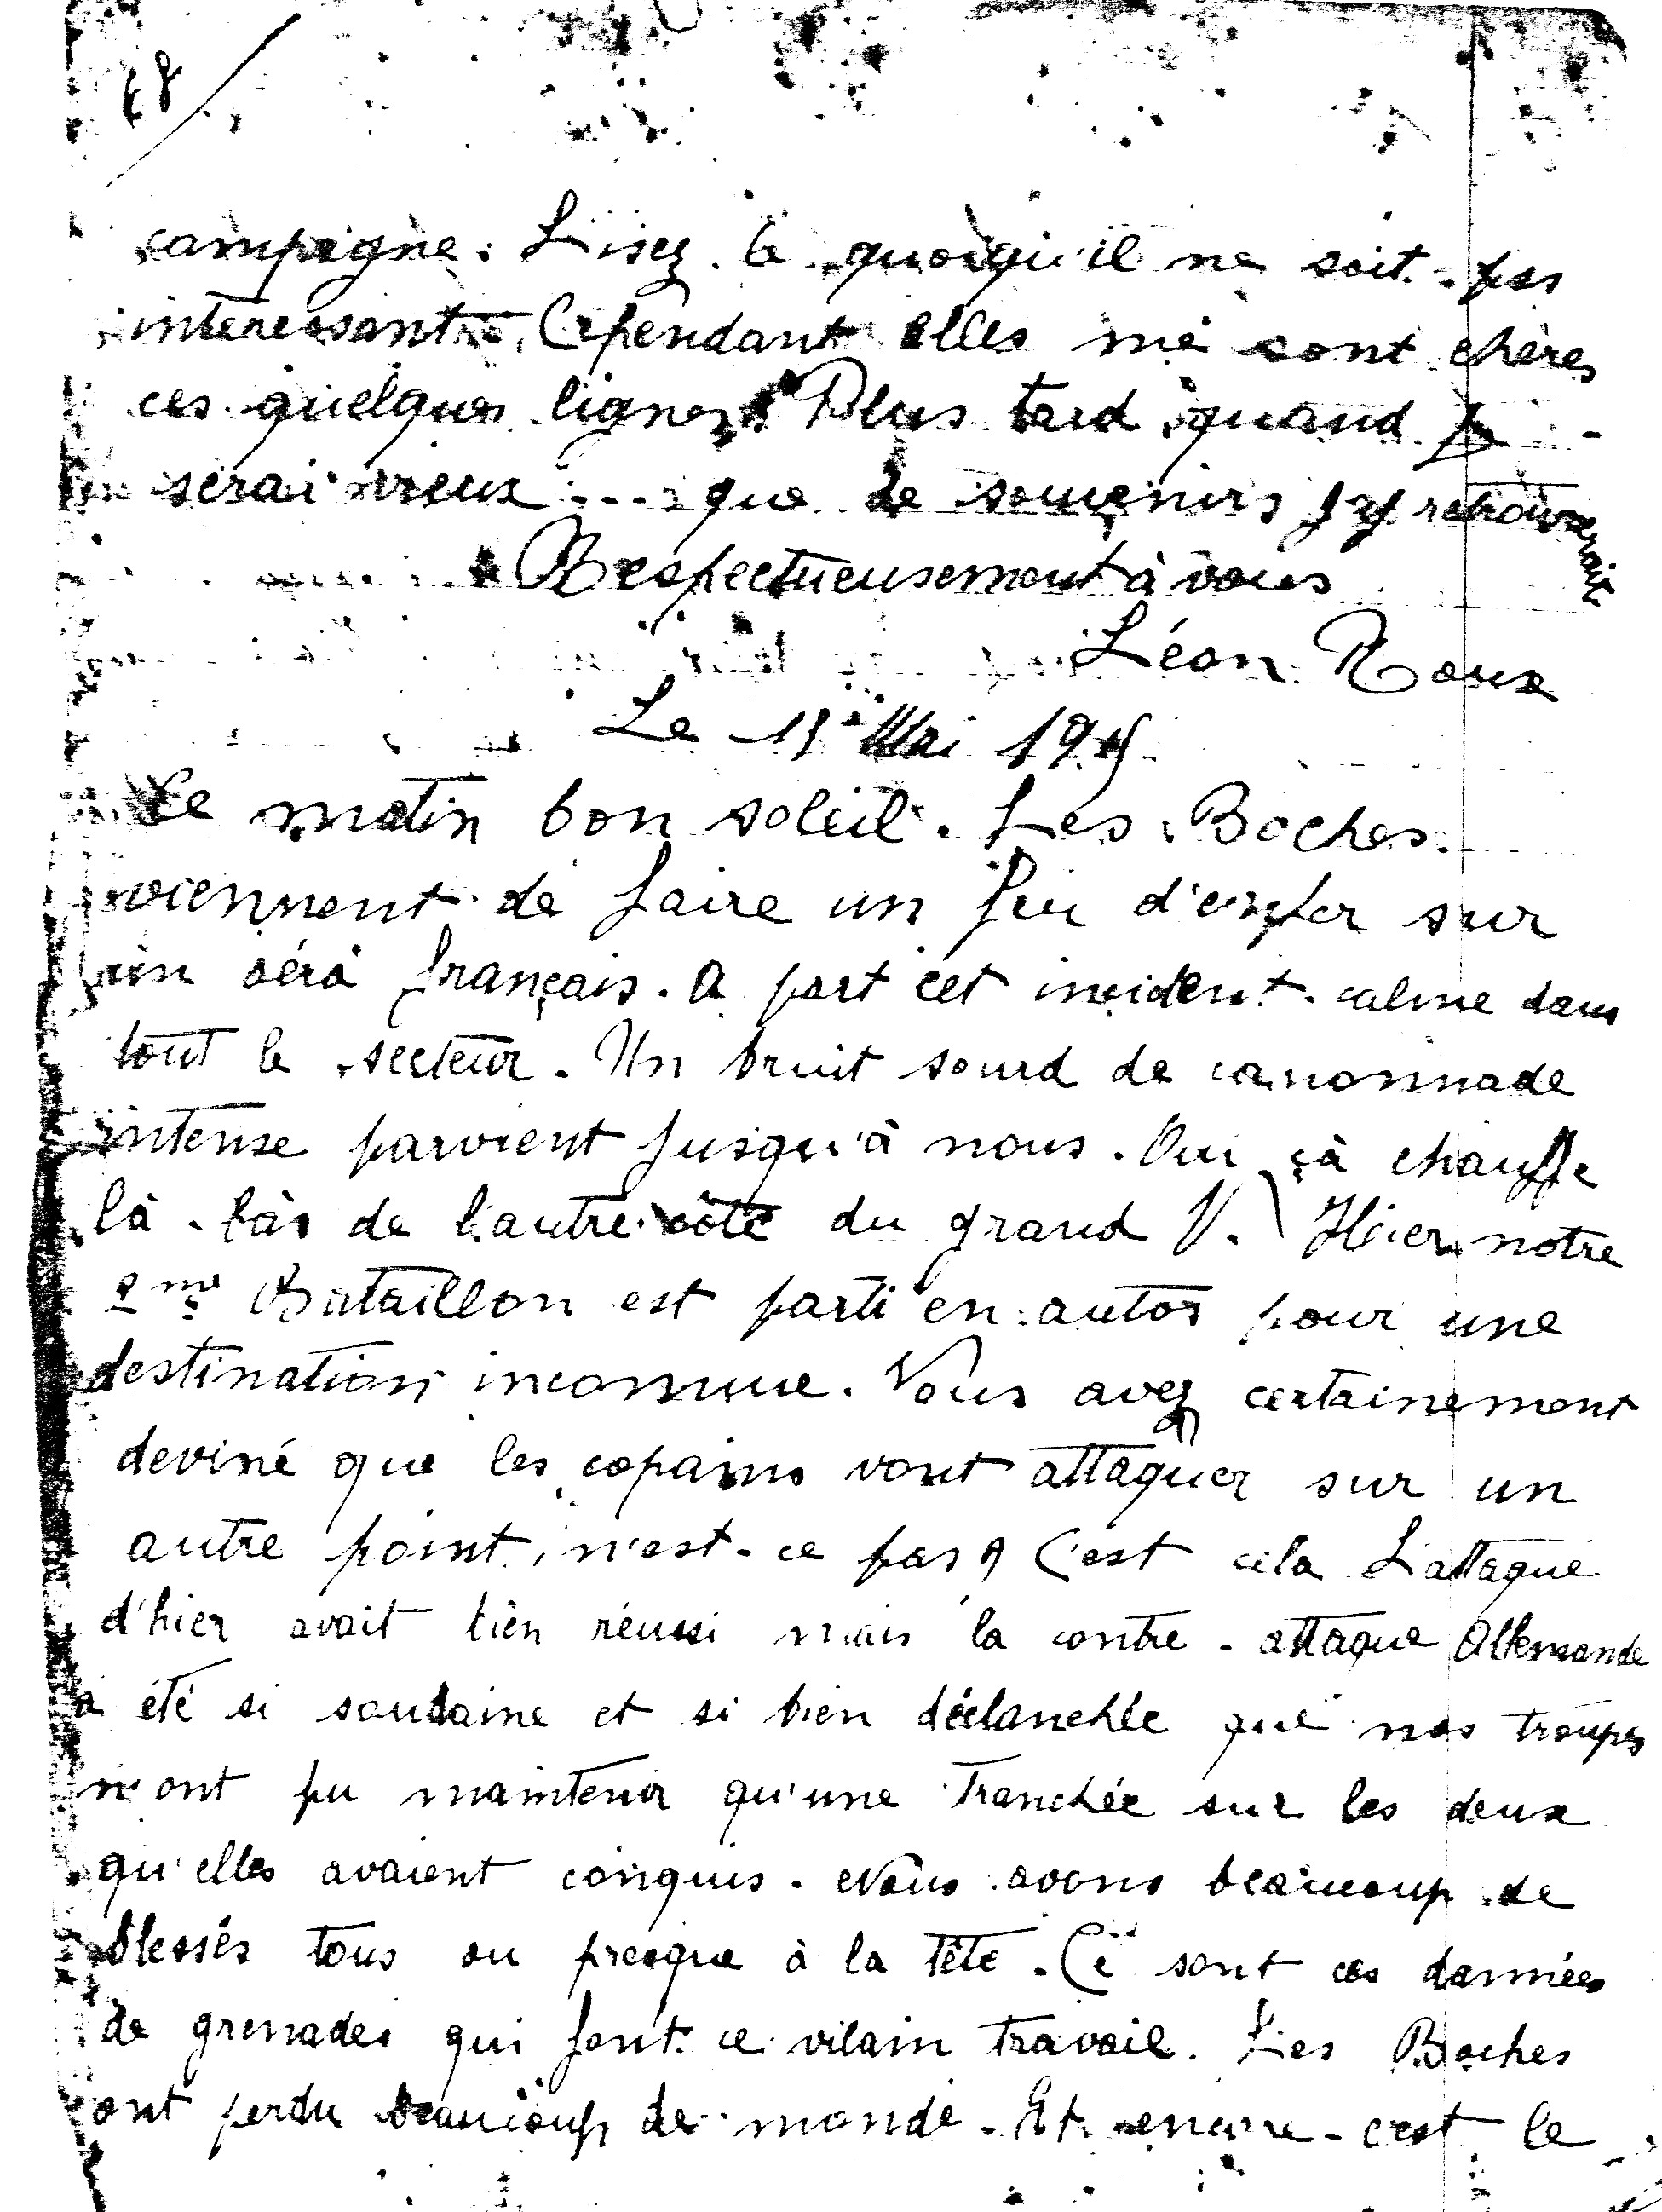 campagne. Lisez-le quoiqu'il ne soit-pas
interessant. Cependant elles me sont chères
ces quelques lignes. Plus tard quand je
serai vieux ... que de souvenirs j'y retrouverais
Respectueusement à vous
Léon Roux
Le 11 Mai 1915
Le matin bon soleil. Les Boches
viennent de faire un feu d'enfer sur
un aéro français. A part cet incident. calme dans
tout le secteur. Un bruit sourd de canonnade
intense parvient jusqu'à nous. Oui çà chauffe
là-bàs de l'autre côté du grand V. Hier notre
2me Bataillon est parti en autos pour une
destination inconnue. Vous avez certainement
deviné que les copains vont attaquer sur un
autre point, n'est-ce pas ? C'est cela L'attaque
d'hier avait bien réussi mais la contre-attaque Allemande
a été si soudaine et si bien déclanchée que nos troupes
n'ont pu maintenir qu'une tranchée sur les deux
qu'elles avaient conquis. Nous avons beaucoup de
blessés tous ou presque à la tête. Ce sont ces damnées
de grenades qui font ce vilain travail. Les Boches
ont perdu beaucoup de monde. Et encore c'est le